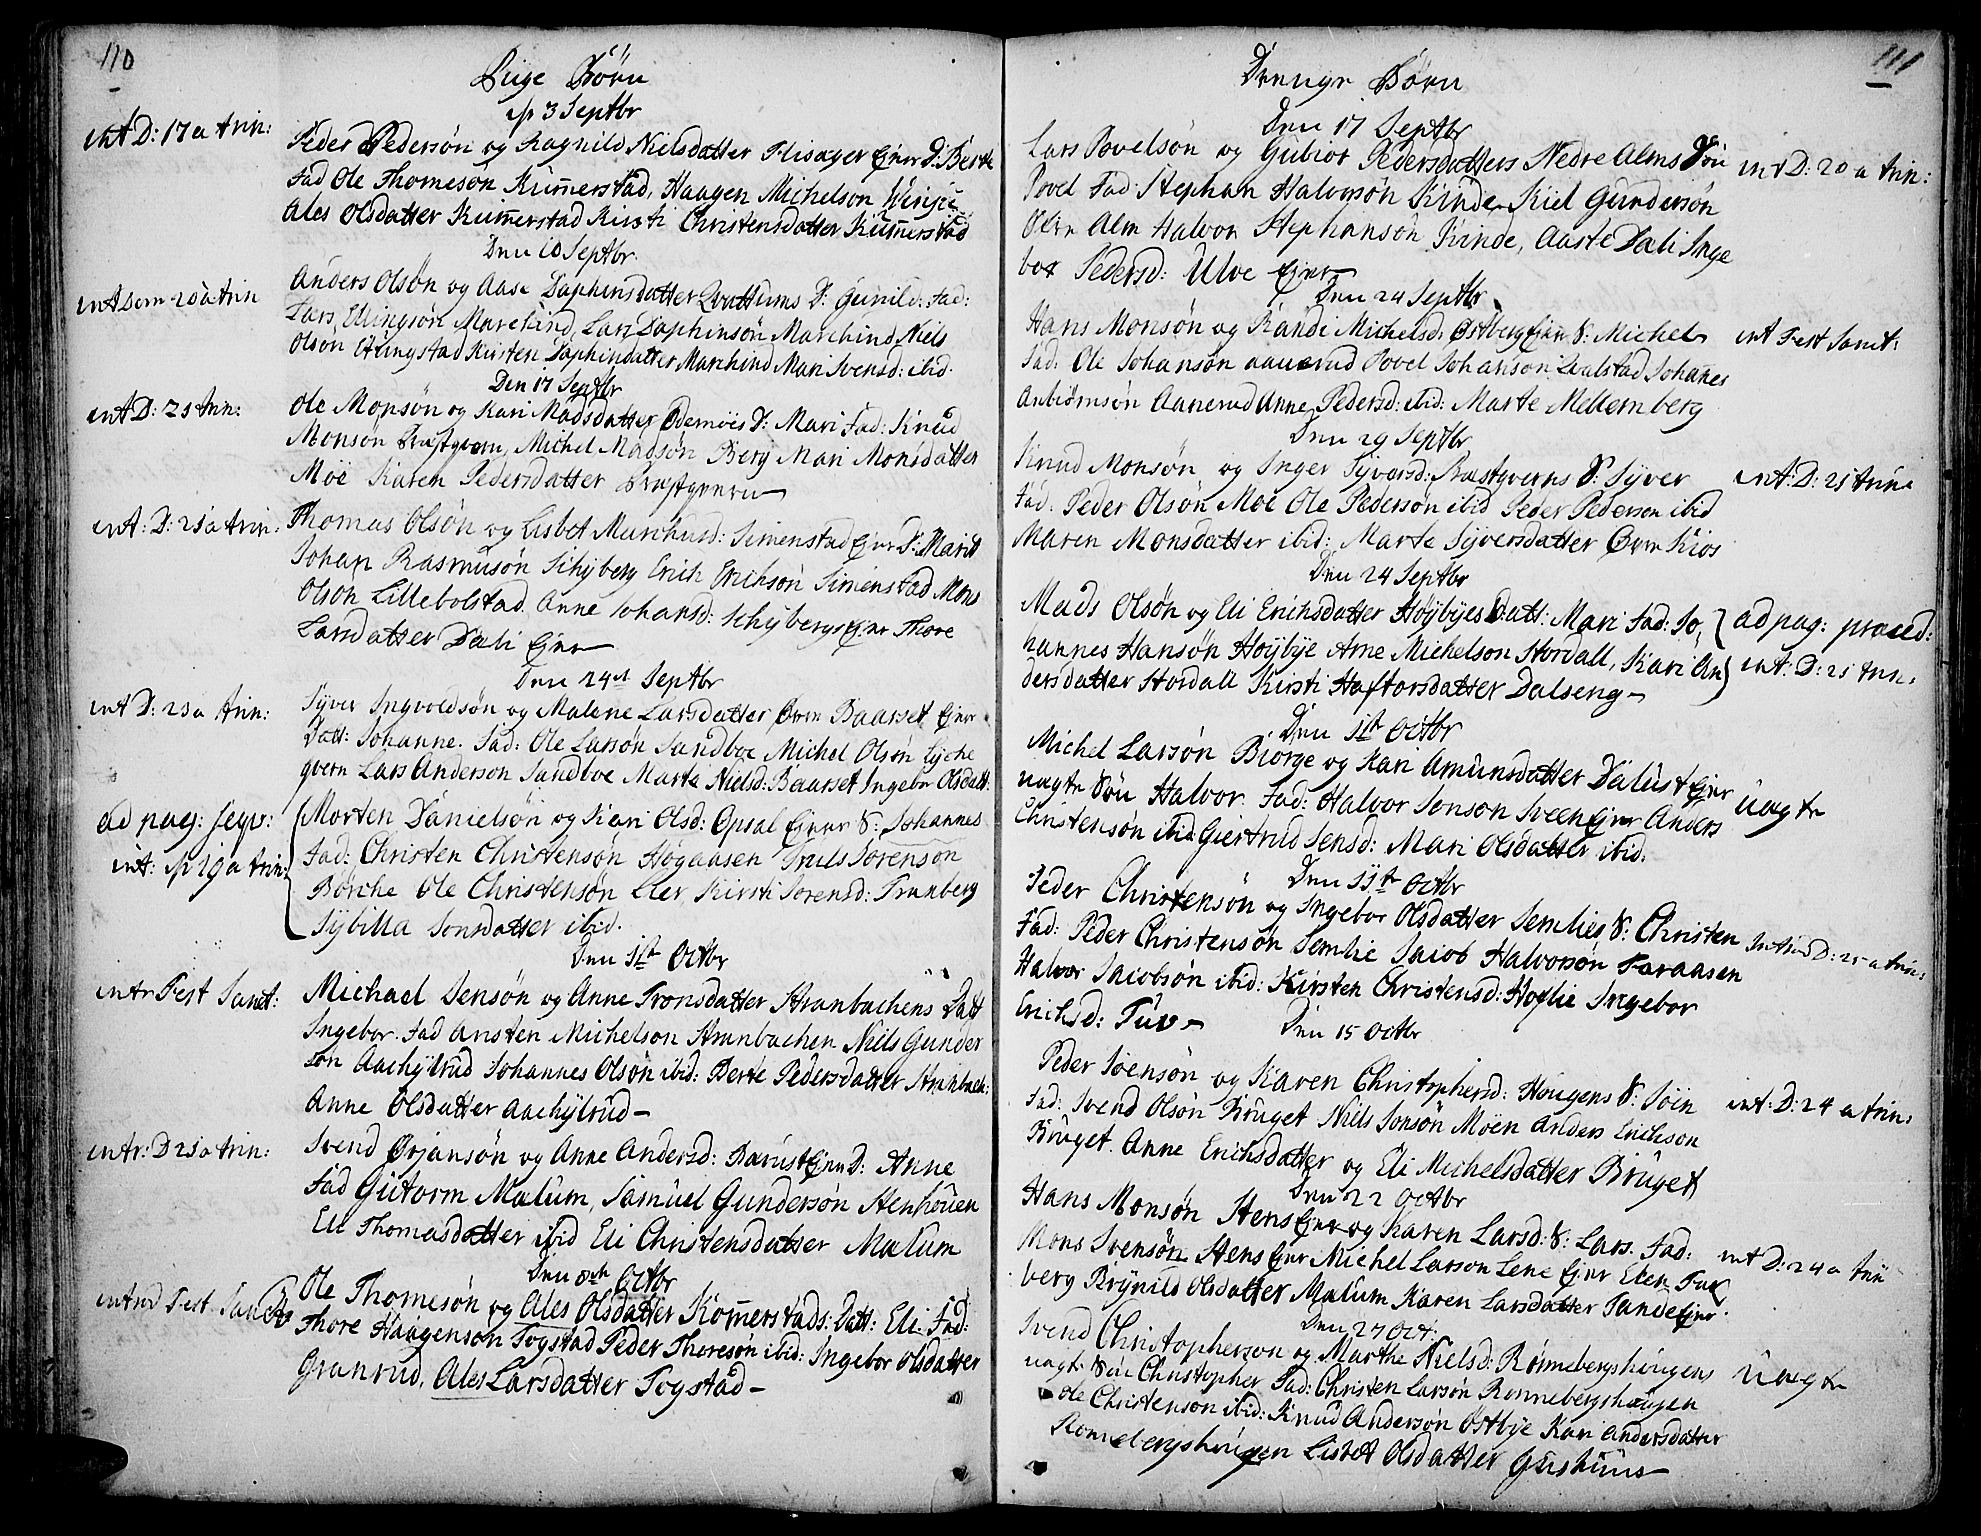 110
Piige Börn
p 3 Septbr
int D: 17 a trin: Peder Pedersön og Ragnild Nielsdatter Flisager Ejer D: Berte
Fad Ole Thomeson Kummerstad, Haagen Michelson
Ales Olsdatter Kummerstad Kirsti Christensdatter Kummerstad
Den 10 Septbr
int Dom 20 a trin Anders Olsön og Aase Daphinsdatter Qvattums D: Gunild: Fad:
Lars Ellingsön Marchind, Lars Daphinsön Marchind Niels
Olson Ettingstad Kirsten Daphindatter Marchind Mari Svensd: ibid.
Den 17 Septbr
int D: 21 trin: Ole Monsön og Kari Madsdatter Odemöis D: Mari Fad: Knud
Monsön Præstqvern, Michel Madsön Berg Mari Monsdatter
Moe Karen Pedersdatter Præstqvern
int: D: 21 a trin: Thomas Olsön og Lisbet Murchusd: Simenstad Ejer D: Marit
Johan Rasmusön Schyberg Erich Erichsön Simenstad Mons
Olsön Lillebolstad Anne Johansd: Schybergs Ejer Thore
Larsdatter Dæli Ejer
Den 24de Septbr
int D: 23 a trin: Syver Ingvoldsön og Malene Larsdatter Övre Baarset Ejer
Datt: Johanne. Fad: Ole Larsön Sandboe Michel Olsön Lyche
qvern Lars Anderson Sandboe Marte Nielsd: Baarset Ingebor Olsdatt:
ad pag: seqv: Morten Danielsön og Kari Olsd: Opsal Ejer S: Johannes
int: p 19 a trin: Fad: Christen Christensön Högaasen Truls Sörenson
Börche Ole Christensön Eler Kirsti Sörensd: Tranberg
Sybilla Jonsdatter ibid.
Den 1ste Octbr
intr Fest Sanct: Michael Jensön og Anne Tronsdatter Stranbachens Datt
Ingebor. Fad Arsten Michelson Stranbachen Niels Gunder
son Aachylrud Johannes Olsön ibid: Berte Pedersdatter Stranbach:
Anne Olsdatter Aachylrud
intr: D 21 a trin: Svend Örjansön og Anne Andersd: Ejer D: Anne
Fad Gutorm Malum, Samuel Gundersön Stenhouen
Eli Thomasdatter ibid Eli Christensdatter Malum
Den 8de Octbr
intrd Fest. Sanct Ole Thomesön og Ales Olsdatter Komerstads: Datt: Eli. Fad:
Thore Haagenson Fogstad Peder Thoresön ibid: Ingebor Olsdatter
Granrud, Ales Larsdatter Fogstad
111
Drenge Börn
Den 17 Septbr
Lars Povelsön og Gubior Pedersdatters Nedre Alms Sön int D: 20 a trin:
Povel Fad: Stephan Halvorsön Kinde Kiel Gundersön
Övre Alm Halvor Stephansön Kinde, Aaste Dæli Inge
bor Pedersd: Ulve Ejer
Den 24 Septbr
Hans Monsön og Randi Michelsd: Östberg Ejer S: Michel int Fest Sanct:
Fad: Ole Johansön Aanerud Povel Johanson Qvalstad Johanes
Anbiömsön Aanerud Anne Pedersd: ibid: Marte Mellemberg
Den 29 Septbr
Knud Monsön og Inger Syversd: Præstqverns S: Syver int: D: 21 trin:
Fad: Peder Olsön Moe Ole Pedersön ibid Peder Pederson ibid
Maren Monsdatter ibid: Marte Syversdatter Övre Kios
Den 24 Septbr
Mads Olsön og Eli Erichsdatter Höybyes Datt: Mari Fad: Jo, ad pag: præced:
hannes Hansön Höybye Arne Michelson Stordall, Kari An int: D: 21 trin:
dersdatter Stordall Kirsti Haftorsdatter Dalseng
Den 1ste Octbr
Michel Larsön Biörge og Kari Amunsdatter Dalust Ejer
uægte Sön Halvor. Fad: Halvor Jonson Sveen Ejer Anders uægte
Christensön ibid Giertrud Jensd: Mari Olsdatter ibid.
Den 11te Octbr
Peder Christensön og Ingebor Olsdatter Semlies S: Christen
Fad: Peder Christensön Semlie Jacob Halvorsön Faraasen intrd D: 21 a trin:
Halvor Jacobsön ibid: Kirsten Christensd: Hoflie Ingebor
Erichsd: Tuv
Den 15 Octbr
Peder Joensön og Karen Christophersd: Hougens S: Join int: D: 24 a trin:
Fad: Svend Olsön Bruget Niels Jonsön Möen Anders Erichson
Bruget. Anne Erichsdatter og Eli Michelsdatter Bruget
Den 22 Octbr
Hans Monsön Stens Ejer og Karen Larsd: S: Lars. Fad:
Mons Svensön Stens Ejer Michel Larson Lene Ejer Elen Fax int D: 24 a trin
berg Brynild Olsdatter Malum Karen Larsdatter Tande Ejer.
Den 27 Oct:
Svend Christopherson og Marthe Nielsd: Rönnebergshougens
uægte Sön Christopher Fad: Christen Larsön Ronnebergshougen uægte
Ole Christenson ibid: Knud Andersön Östbye Kari Andersdatter
Ronnebergshougen Lisbet Olsdatter